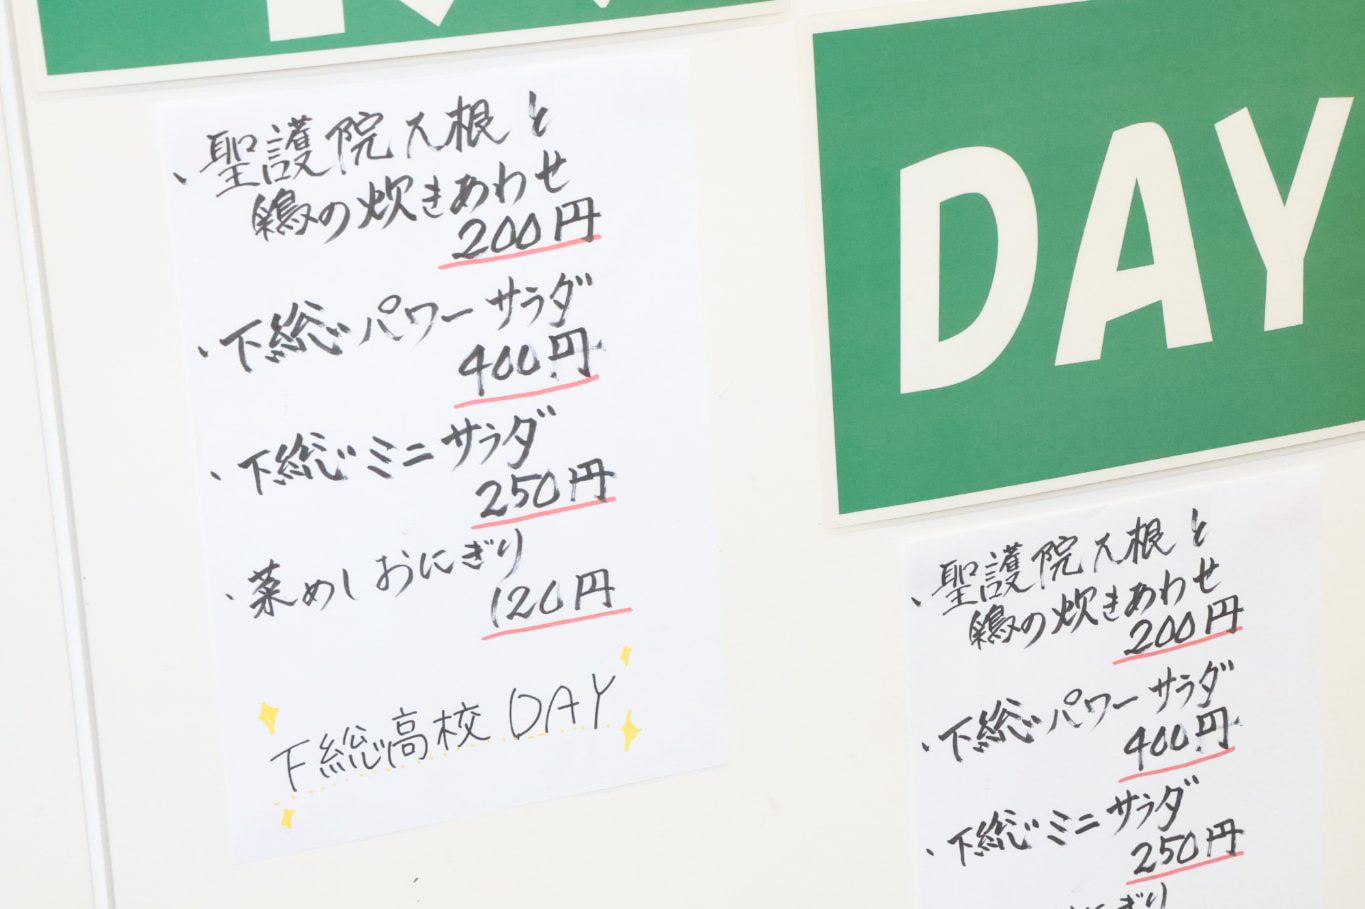 ・聖護院大根と
鶏の炊きあわせ
200円
・下総パワーサラダ
400円
・下総ミニサラダ
250円
・菜めしおにぎり
120円
下総高校DAY
DAY
・聖護院大根と
鶏の炊きあわせ
200円
・下総パワーサラダ
400円
・下総ミニサラダ
250円
にぎり